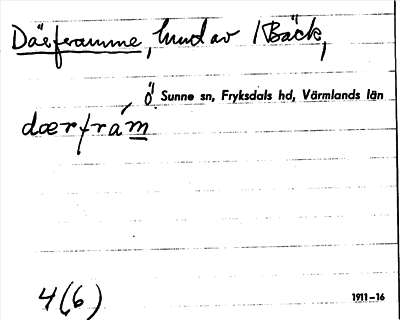 Därframme, hund av 1 Bäck,
Ö. Sunne sn, Fryksdals hd, Värmlands län
dærfrám
4(6)
1911–16